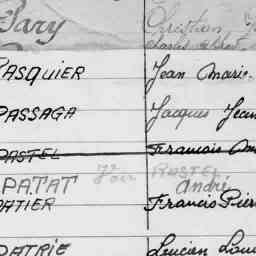 Pary Christian
PASQUIER Jean Marie
PASSAGA Jacques Jean
PASTEL Francois
Voir ROSTEL
PATAT André
PATIER Francis Pierre
PATRIE Lucien Louis